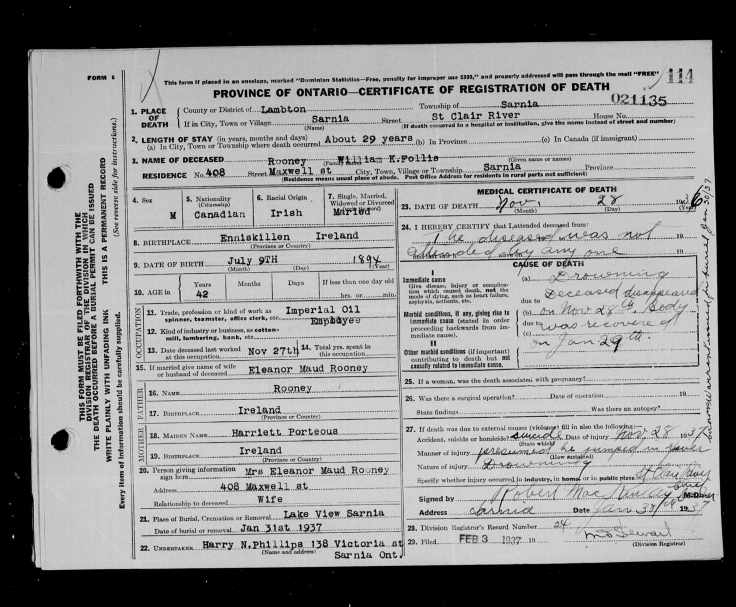 FORM 5
This form if placed in an envelope, marked "Dominion Statistics—Free, penalty for improper use $300," and properly addressed will pass through the mail "FREE"
114
PROVINCE OF ONTARIO—CERTIFICATE OF REGISTRATION OF DEATH
021135
1. PLACE OF DEATH
County or District of Lambton Township of Sarnia
If in City, Town or Village Sarnia Street St Clair River House No.
(Name) (If death occurred in a hospital or institution, give the name instead of street and number)
2. LENGTH OF STAY (in years, months and days)
(a) In City, Town or Township where death occurred About 29 years (b) In Province (c) In Canada (if immigrant)
3. NAME OF DECEASED Rooney William K.Follis
(Family name) (Given name or names)
RESIDENCE No. 408 Maxwell st City, Town, Village or Township Sarnia Province
(Residence means usual place of abode. Post Office Address for residents in rural parts not sufficient)
THIS FORM MUST BE FILED FORTHWITH WITH THE
DIVISION REGISTRAR OF THE DIVISION IN WHICH
THE DEATH OCCURRED BEFORE A BURIAL PERMIT CAN BE ISSUED
WRITE PLAINLY WITH UNFADING INK THIS IS A PERMANENT RECORD
Every item of information should be carefully supplied. (See reverse side for instructions.)
4. Sex M
5. Nationality (Citizenship) Canadian
6. Racial Origin Irish
7. Single, Married, Widowed or Divorced Maried
8. BIRTHPLACE Enniskillen Ireland
(Province or Country)
9. DATE OF BIRTH July 9TH 1894
(Month) (Day) (Year)
10. AGE in Years 42 Months Days If less than one day old hrs. or min.
OCCUPATION
11. Trade, profession or kind of work as spinner, teamster, office clerk, etc. Imperial Oil
Employee
12. Kind of industry or business, as cotton-mill, lumbering, bank, etc.
13. Date deceased last worked at this occupation Nov 27th
14. Total yrs. spent in this occupation
15. If married give name of wife or husband of deceased Eleanor Maud Rooney
FATHER
16. NAME Rooney
17. BIRTHPLACE Ireland
(Province or Country)
MOTHER
18. MAIDEN NAME Harriett Porteous
19. BIRTHPLACE Ireland
(Province or Country)
20. Person giving information sign here Mrs Eleanor Maud Rooney
Address 408 Maxwell st
Relationship to deceased Wife
21. Place of Burial, Cremation or Removal Lake View Sarnia
Date of burial or removal Jan 31st 1937
22. UNDERTAKER Harry N.Phillips 138 Victoria st
(Name and address) Sarnia Ont.
MEDICAL CERTIFICATE OF DEATH
23. DATE OF DEATH Nov. 28 1936
(Month) (Day) (Year)
24. I HEREBY CERTIFY that I attended deceased from:
The diseased was not 19
attended by any one 19
CAUSE OF DEATH
Immediate cause
Give disease, injury or complication which caused death, not the mode of dying, such as heart failure, asphyxia, asthenia, etc.
(a) Drowning
due to Deceased disappeared
Morbid conditions, if any, giving rise to immediate cause (stated in order proceeding backwards from immediate cause).
(b) on Nov 28th. Body
due to was recovered
(c) on Jan 29th.
II
Other morbid conditions (if important) contributing to death but not causally related to immediate cause.
25. If a woman, was the death associated with pregnancy?
26. Was there a surgical operation? Date of operation 19
State findings Was there an autopsy?
27. If death was due to external causes (violence) fill in also the following:
Accident, suicide or homicide? suicide Date of injury Nov 28 193
(State which)
Manner of injury presumed he jumped in river
(How sustained)
Nature of injury Drowning
Specify whether injury occurred in industry, in home, or in public place St Clair River
Signed by Robert Mac Coroner
Address Sarnia Date Jan 30 1937
28. Division Registrar's Record Number 24
29. Filed FEB 3 1937 19
(Division Registrar)